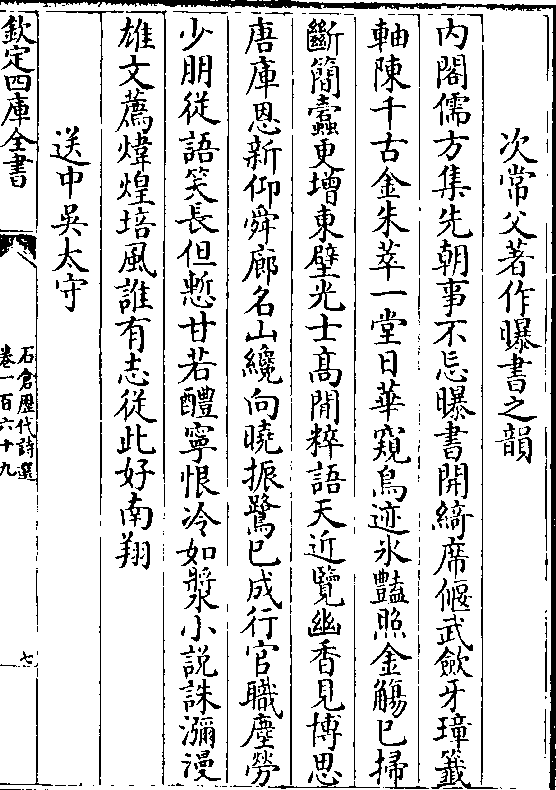 次常父著作曝書之韻
内閣儒方集先朝事不忘曝書開綺席偃武歛牙璋籤
軸陳千古金朱萃一堂日華窺鳥迹氷豔照金觴已掃
斷簡蠧更增東壁光士髙開粹語天近覽幽香見博思
唐庫恩新仰舜廊名山纔向曉振鷺已成行官職塵勞
少朋從語笑長但慙甘若醴寧恨冷如漿小説誅瀰漫
雄文薦煒煌培風誰有志從此好南翔
送中吳太守
欽定四庫全書
石倉歴代詩選
卷一百六十九
七